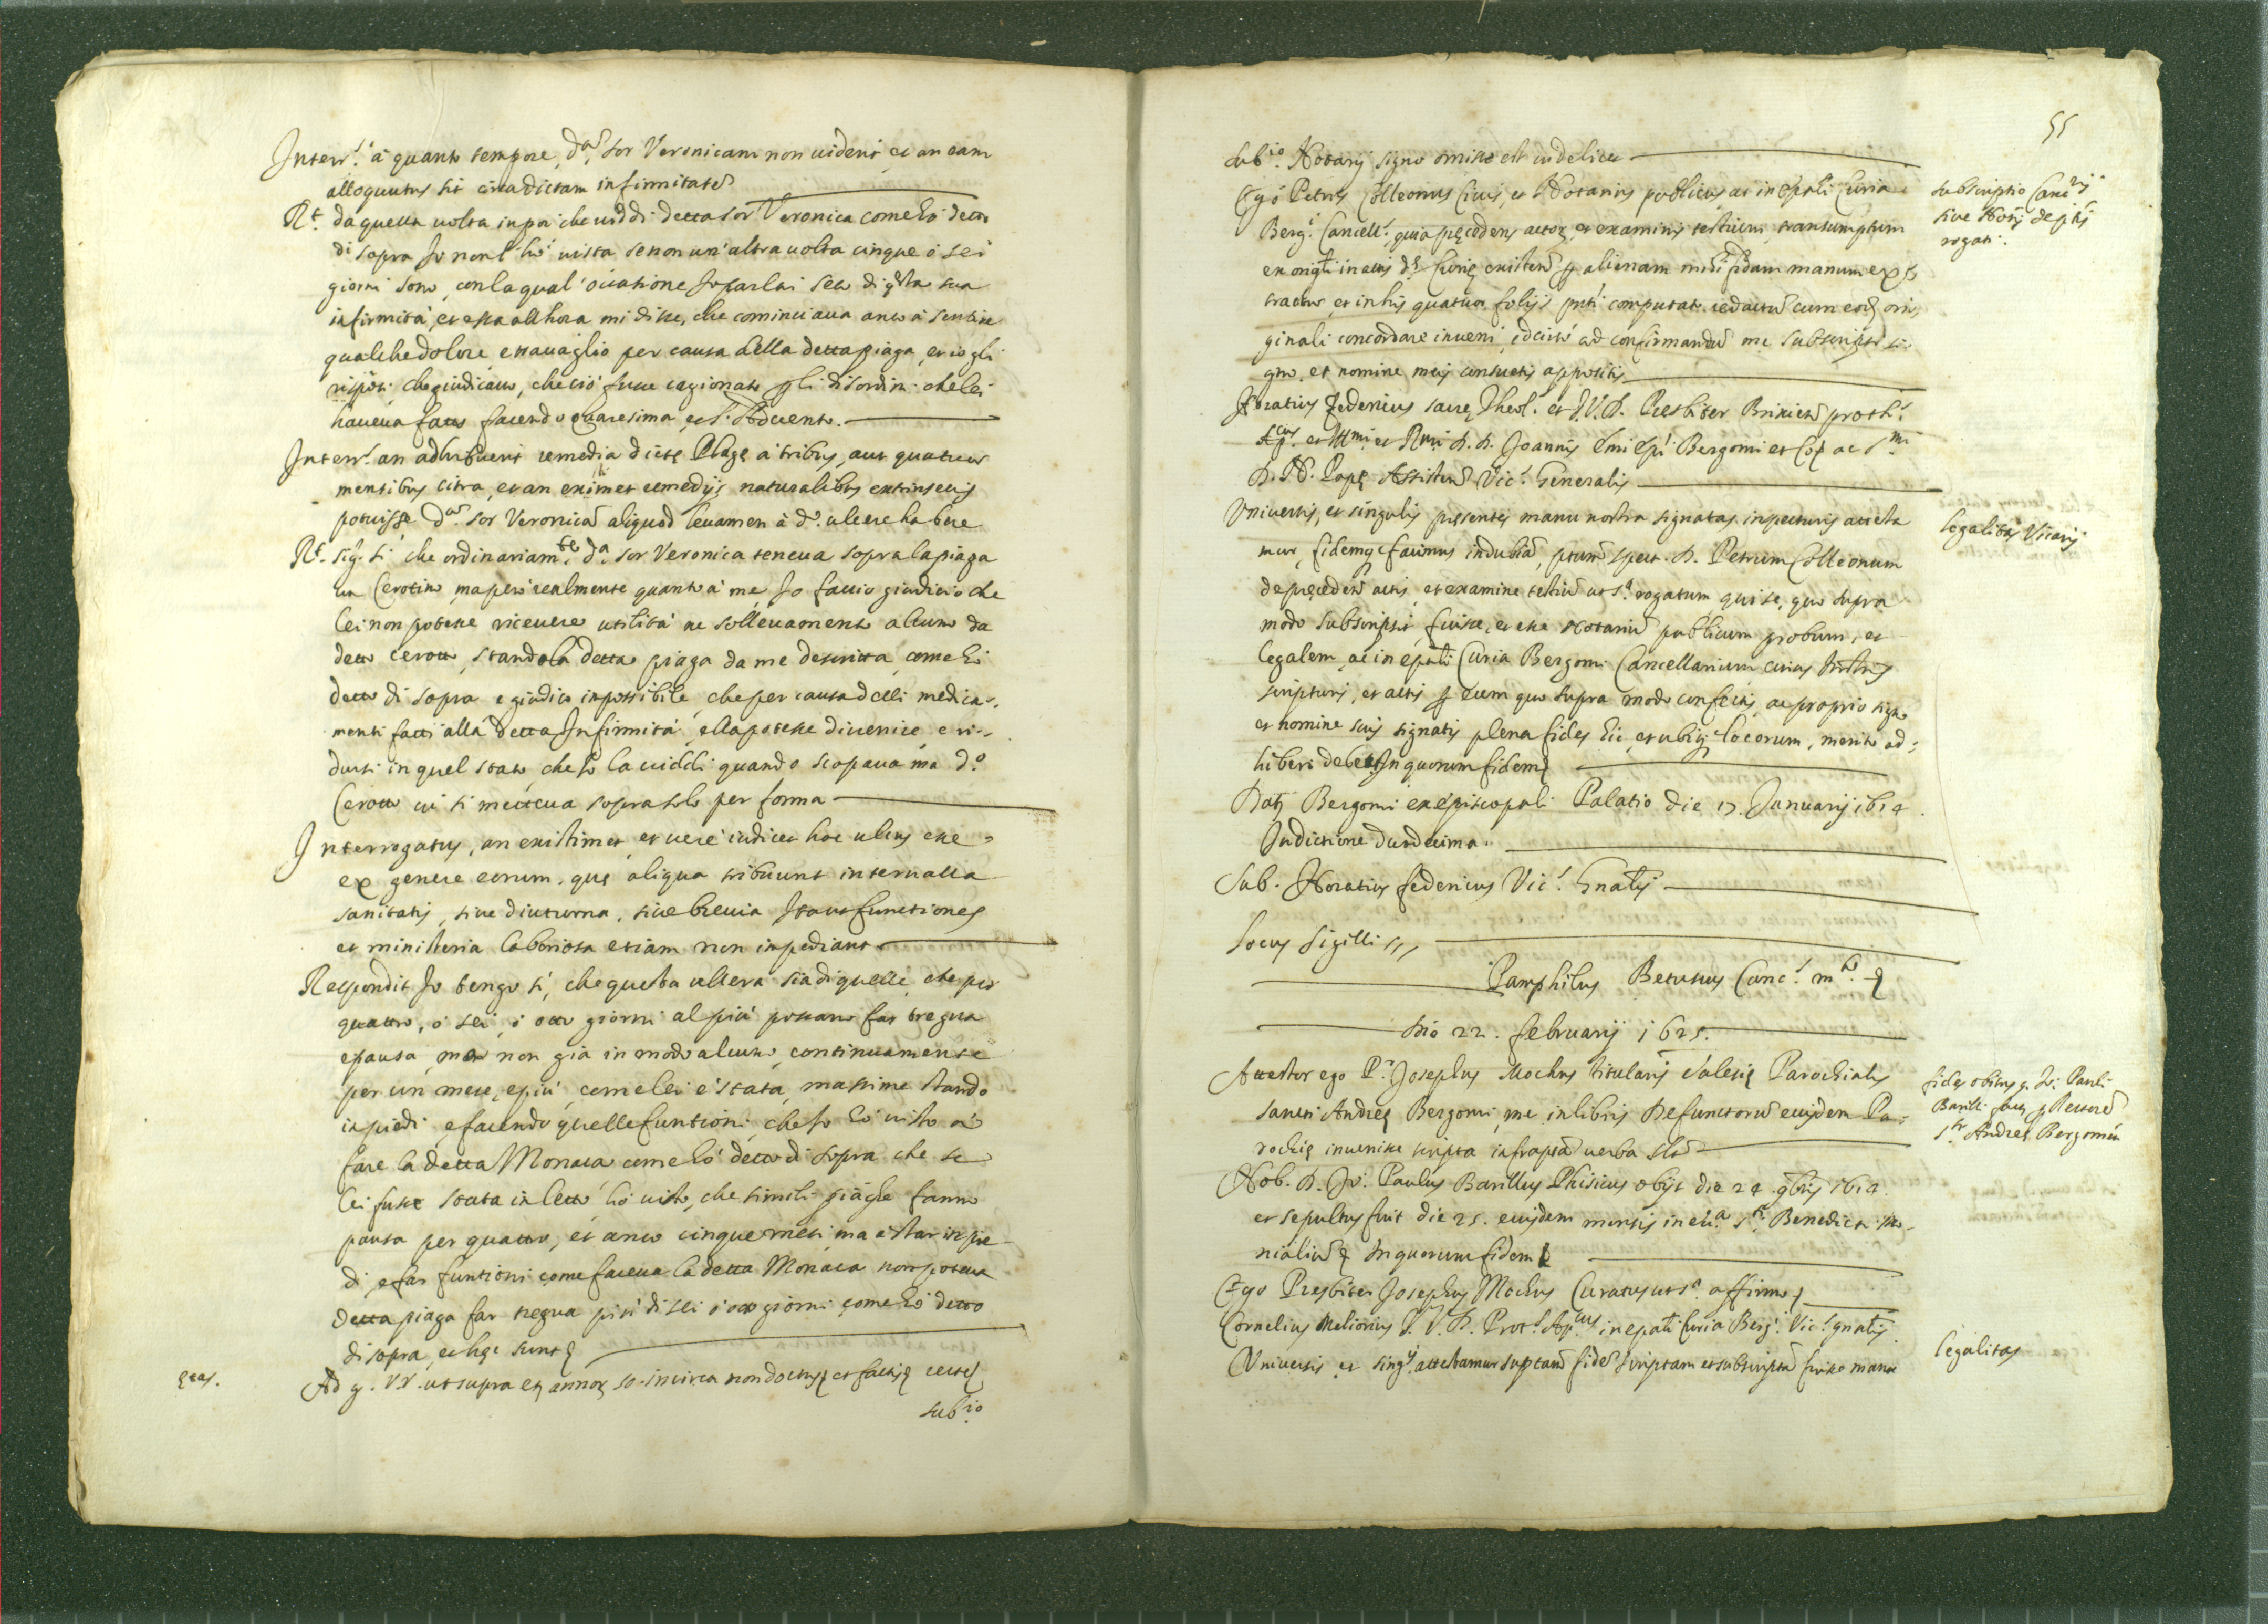 Interr.s à quanto tempore, d.am sor Veronicam non uiderit et an eam
alloquutus sit circa dictam infirmitatē
R.t da quella uolta in poi che uiddi detta sor Veronica come hò detto
di sopra Io non l'hò uista se non un'altra uolta cinque ò sei
giorni sono, con la qual'occatione Io parlai seco di q̄sta sua
infirmità, et essa all'hora mi disse, che cominciaua anco à sentire
qualche dolore, e trauaglio per causa della detta piaga, et io gli
risposi che giudicauo, che ciò fusse cagionato p̱ gli disordini che lei
haueua fatto facendo Quaresima, et l'Aduento.
Interr.s an adhibuerit remedia dictę Plagę à tribus, aut quatuor
mensibus citra, et an eximet remedijs naturalibus extrinsecis
potuisse d.am sor Veronicā aliquod leuamen à d.o ulcere habere
R.t sig.r sì che ordinariam.te d.a sor Veronica teneua sopra la piaga
un Cerotino, ma però realmente quanto à me, Io faccio giudicio che
lei non potesse riceuere utilità ne solleuamento alcuno da
detto cerotto, stando la detta piaga da me descritta, come hò
detto di sopra e giudico impossibile, che per causa delli medica-
menti fatti alla detta Infirmità, ella potesse diuenire, e ri-
dursi in quel stato, che Io la uiddi quando scopaua ma d.o
Cerotto ui si metteua sopra solo per forma
Interrogatus, an existimet, et uerè iudicet hoc ulcus esse
ex genere eorum, quę aliqua tribuunt interualla
sanitatis, siue diuturna, siue breuia Itaut functiones
et ministeria laboriosa etiam non impediant
Respondit Io tengo sì, che questa ulcera sia di quelle, che per
quattro, ò sei, ò otto giorni al più possano far tregua
e pausa, ma non già in modo alcuno, continuamente
per un mese, e più, come lei è stata, massime stando
in piedi, e facendo quelle funtioni, che Io hò uisto à
fare la detta Monaca come hò detto di sopra che se
lei fusse stata in letto, hò uisto, che simili piaghe fanno
pausa per quattro, et anco cinque mesi, ma à star in pie-
di, e far funtioni come faceua la detta Monaca non poteua
detta piaga far tregua più di sei ò otto giorni come hò detto
di sopra, et hęc sunt
ętas.
Ad g. r.r. ut supra est annor. 50. in circa non doctus et factis recte
sub.io
55
sub.io Notarij signo omisso est uidelicet
Ego Petrus Colleonus Ciuis, et Notarius publicus ac in Ep̄ali Curia
Berg.i Cancell.s, quia pręcedens actor. et examinis testium, transumptum
ex origīli in actis d.ę Curię existeñ p̱ alienam mihi fidam manum ex-
tractum, et in his quatuor folijs pn̄ti computato redactū cum eodem ori-
ginali concordare inueni, idcirco ad confirmandū me subscripsi si-
gno, et nomine meis consuetis appositis
Horatius Federicus sacrę Theol.ę et I.V.D. Presbiter Brixieñ proth.s
Ap.cus et Ill.mi et R.mi D.D. Joannis Emi Ep̄i Bergomi et Co: ac S.mi
D.N.D. Papę Assisteñ Vic.s Generalis
Vniuersis, et singulis pręsentes manu nostra signatas inspecturis attesta
mur, fidemq. facimus indubiā, p̄tum spect. D. Petrum Colleonum
de pręcedeñ actis, et examine testiū ut s.a rogatum, qui se, quo supra
modo subscripsit, fuisse, et esse Notariū publicum probum, et
legalem, ac in ep̄ali Curia Bergomi Cancellarium cuius
scripturis, et actis p̱ eum quo supra modo confectis, ac proprio signo
et nomine suis signatis plena fides hic, et ubiq. locorum, merito ad-
hiberi debet. In quorum fidem
Dat. Bergomi ex episcopali Palatio die 17. Januarij 1614.
Indictione duodecima.
Sub. Horatius federicus Vic.s G̃nalis
Locus Sigilli
Pamphilus Betutius Canc.s m.to
Die 22. februarij 1625.
Attestor ego P.r Josephus Mochus titularis ēclesię Parochialis
sancti Andreę Bergomi, me in libris Defunctorū eiusdem Pa-
rochię inuenisse scripta infrap̄ta uerba
Nob. D. Jo: Paulus Barillus Phisicus obijt die 24. 9bris 1614.
et sepultus fuit die 25. eiusdem mensis in ecc.a S.ti Benedicti Mo-
nialiū In quorum fidem
Ego Presbiter Josephus Mochus Curatus ut s.a affirmo
Cornelius Meliorius I.V.D. Prot.s Ap.cus in ep̄ali Curia Berg.i Vic.s gn̄alis
Vniuersis, et sing.s attestamur sup̄tam fidē scriptam et subscriptā fuisse manu
subscriptio Canc.rij
siue Notrij de p̄tis
rogati.
legalitas Vicarij
fides obitus q. Jo: Pauli
Barilli p̱ Rectorē
S.ti Andreę Bergomi
legalitas